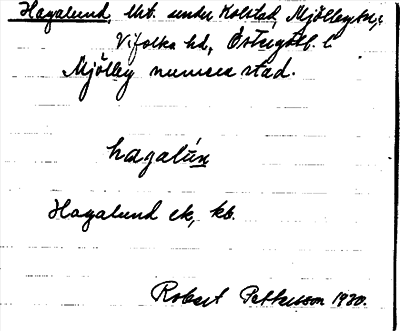 Hagalund, lht. under Kolstad, Mjölby sn,
Vifolka hd, Östergötl. l
Mjölby numera stad.
hagalún
Hagalund ek, kb.
Robert Pettersson 1930.